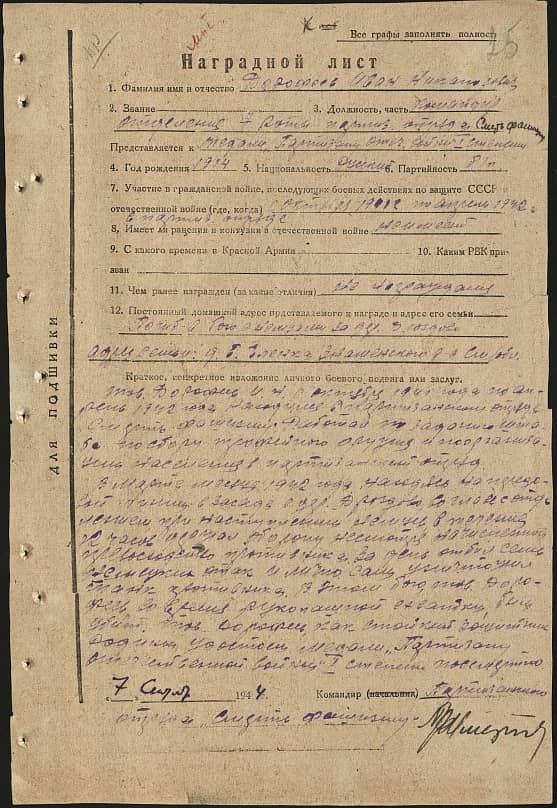 Все графы заполнять полност
Наградной лист
1. Фамилия имя и отчество Дорофеев Иван
2. Звание 3. Должность, часть Командир
отделения 7 роты партиз отряда Смерть фашизму
Представляется к медали Партизану Отеч. войны I степени
4. Год рождения 1914 5. Национальность русский 6. Партийность б/п
7. Участие в гражданской войне, последующих боевых действиях по защите СССР и
отечественной войне (где, когда) с октября 1941 г. по апрель 1942 г.
в партиз. отряде
8. Имеет ли ранения и контузии в отечественной войне не имеет
9. С какого времени в Красной Армии 10. Каким РВК при-
зван
11. Чем ранее награжден (за какие отличия) не награждался
12. Постоянный домашний адрес представляемого к награде и адрес его семьи
Погиб в бою за дер.
адрес семьи: д. Б. Еленка Знаменского р-на Смол.
Краткое, конкретное изложение личного боевого подвига или заслуг.
Тов. Дорофеев И. Н. с октября 1941 года по ап-
рель 1942 года находился в партизанском отряде
Смерть фашизму. Работал по заданию шта-
ба по сбору трофейного оружия и
населения в партизанский отряд.
В марте месяце 1942 года находясь на передо-
вой линии в засаде в дер. Дроздово со своим отде-
лением при наступлении немцев в течение
12 часов держал оборону несмотря на численное
превосходство противника, за день отбил семь
немецких атак и лично сам уничтожил
танк противника. В этом бою тов. Доро-
феев во время рукопашной схватки был
убит. Тов. Дорофеев как стойкий защитник
родины, удостоен медали "Партизану
отечественной войны" I степени посмертно
7 Сент 1944. Командир (начальник) Партизанского
отряда "Смерть фашизму"
ДЛЯ ПОДШИВКИ